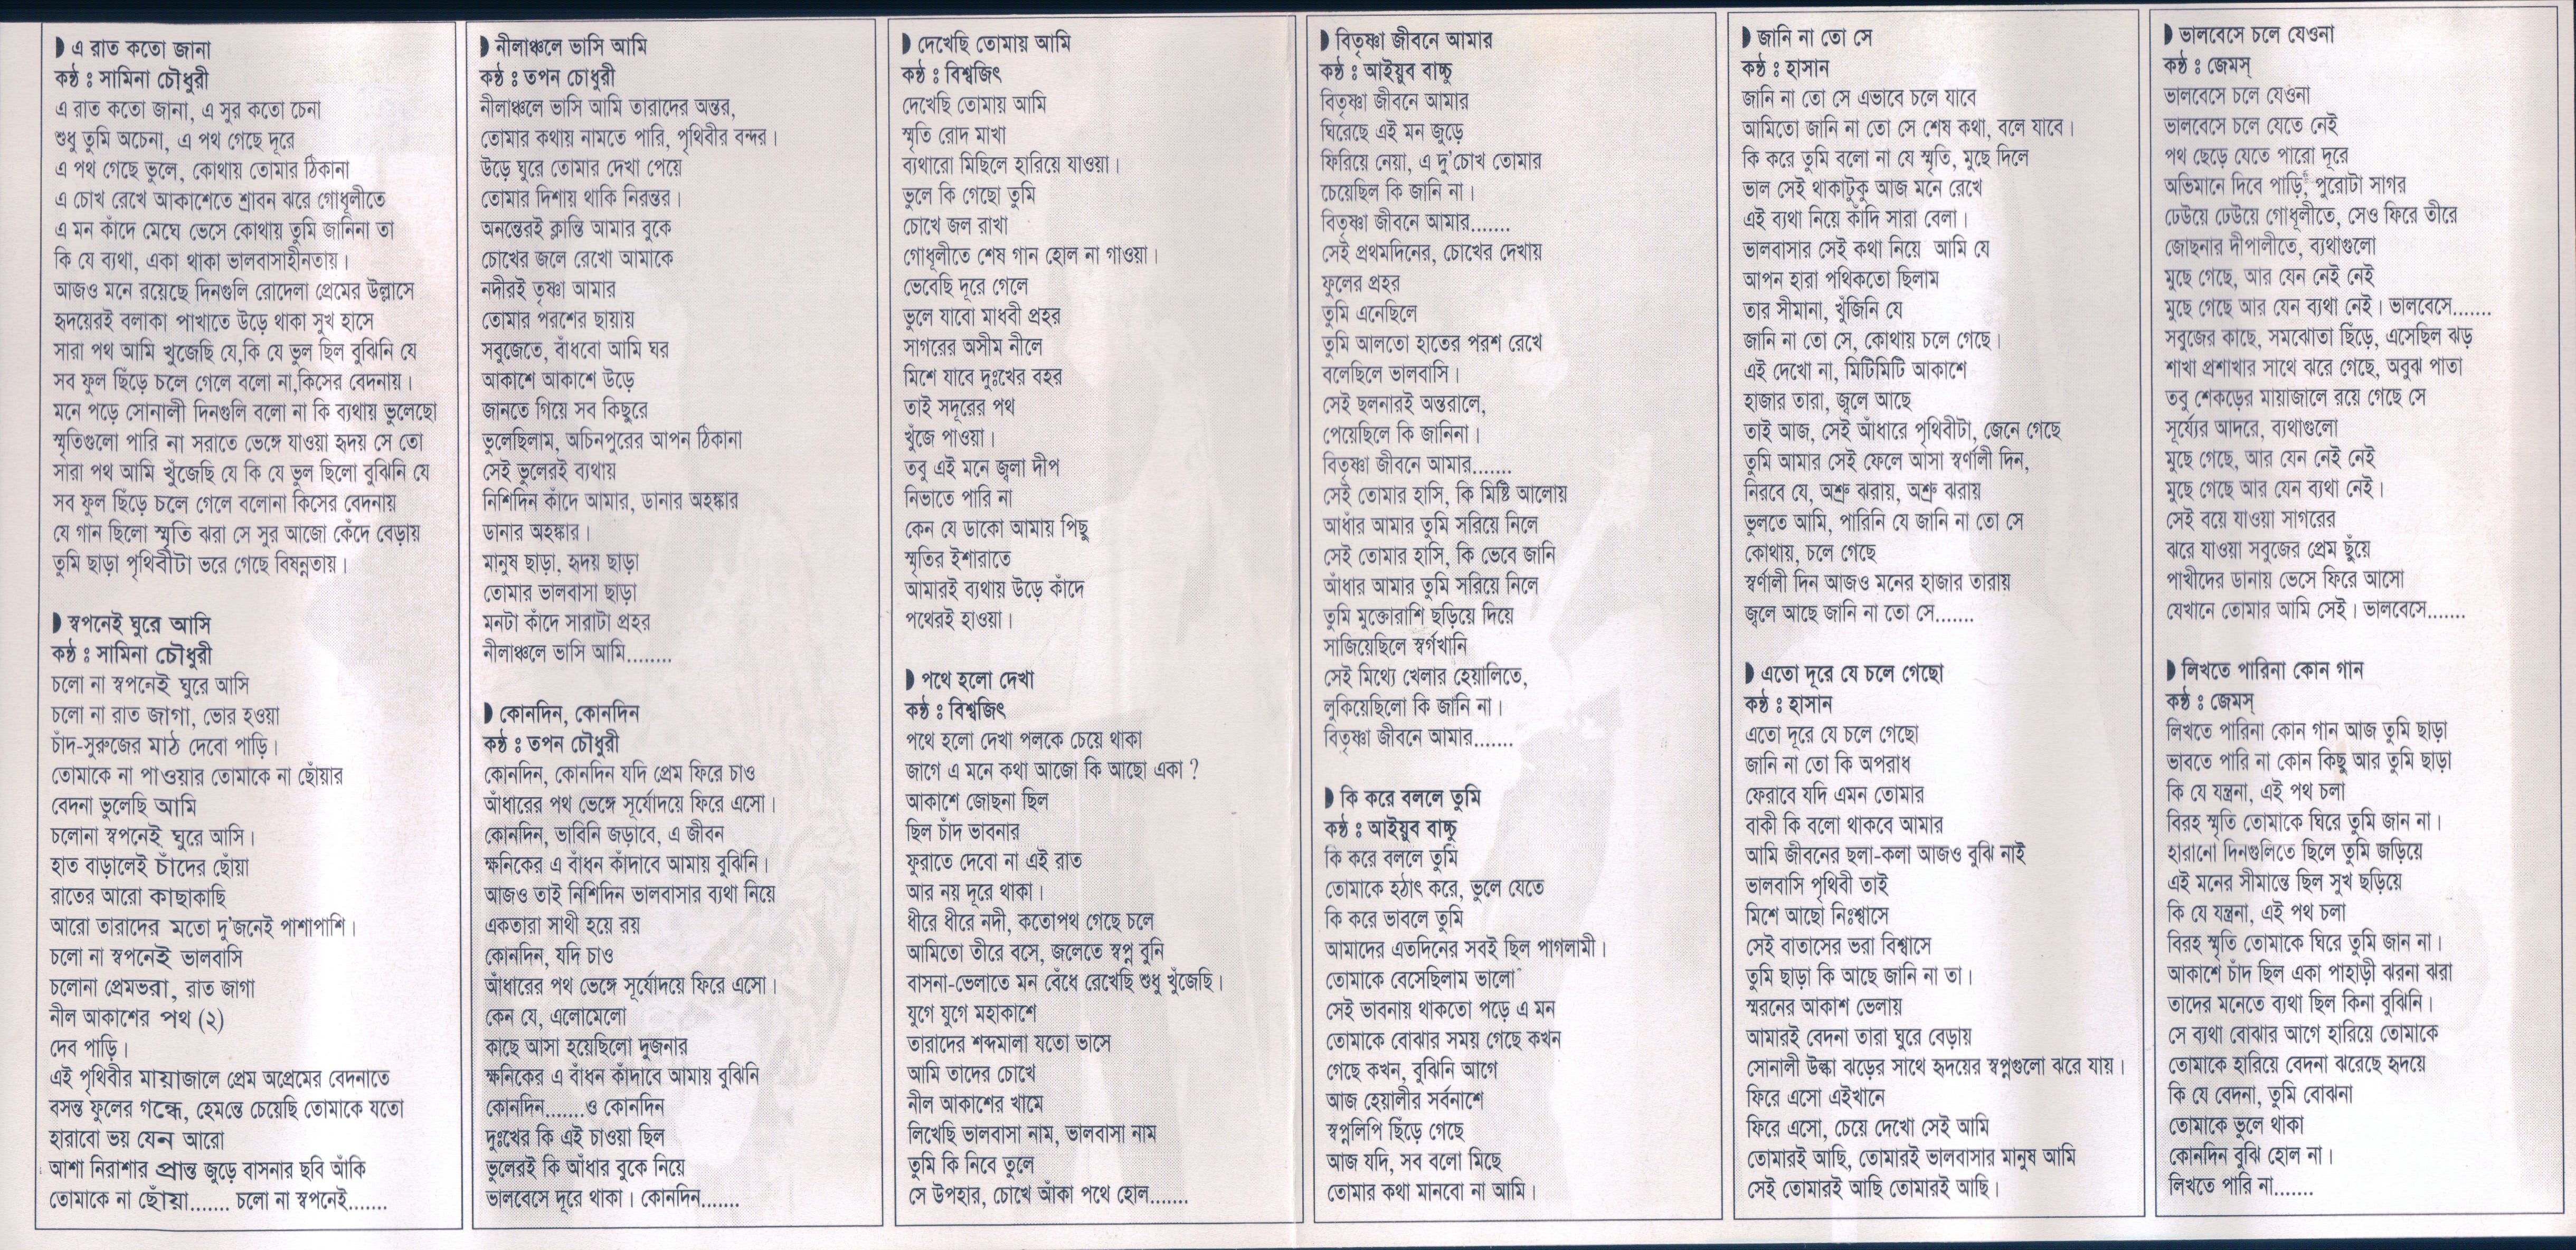 ◗ এ রাত কতো জানা
কন্ঠ ঃ সামিনা চৌধুরী
এ রাত কতো জানা, এ সুর কতো চেনা
শুধু তুমি অচেনা, এ পথ গেছে দূরে
এ পথ গেছে ভুলে, কোথায় তোমার ঠিকানা
এ চোখ রেখে আকাশেতে শ্রাবন ঝরে গোধূলীতে
এ মন কাঁদে মেঘে ভেসে কোথায় তুমি জানিনা তা
কি যে ব্যথা, একা থাকা ভালবাসাহীনতায়।
আজও মনে রয়েছে দিনগুলি রোদেলা প্রেমের উল্লাসে
হৃদয়েরই বলাকা পাখাতে উড়ে থাকা সুখ হাসে
সারা পথ আমি খুজেছি যে,কি যে ভুল ছিল বুঝিনি যে
সব ফুল ছিঁড়ে চলে গেলে বলো না,কিসের বেদনায়।
মনে পড়ে সোনালী দিনগুলি বলো না কি ব্যথায় ভুলেছো
স্মৃতিগুলো পারি না সরাতে ভেঙ্গে যাওয়া হৃদয় সে তো
সারা পথ আমি খুঁজেছি যে কি যে ভুল ছিলো বুঝিনি যে
সব ফুল ছিঁড়ে চলে গেলে বলোনা কিসের বেদনায়
যে গান ছিলো স্মৃতি ঝরা সে সুর আজো কেঁদে বেড়ায়
তুমি ছাড়া পৃথিবীটা ভরে গেছে বিষন্নতায়।
◗ স্বপনেই ঘুরে আসি
কন্ঠ ঃ সামিনা চৌধুরী
চলো না স্বপনেই ঘুরে আসি
চলো না রাত জাগা, ভোর হওয়া
চাঁদ-সুরুজের মাঠ দেবো পাড়ি।
তোমাকে না পাওয়ার তোমাকে না ছোঁয়ার
বেদনা ভুলেছি আমি
চলোনা স্বপনেই ঘুরে আসি।
হাত বাড়ালেই চাঁদের ছোঁয়া
রাতের আরো কাছাকাছি
আরো তারাদের মতো দু'জনেই পাশাপাশি।
চলো না স্বপনেই ভালবাসি
চলোনা প্রেমভরা, রাত জাগা
নীল আকাশের পথ (২)
দেব পাড়ি।
এই পৃথিবীর মায়াজালে প্রেম অপ্রেমের বেদনাতে
বসন্ত ফুলের গন্ধে, হেমন্তে চেয়েছি তোমাকে যতো
হারাবো ভয় যেন আরো
আশা নিরাশার প্রান্ত জুড়ে বাসনার ছবি আঁকি
তোমাকে না ছোঁয়া....... চলো না স্বপনেই.......
◗ নীলাঞ্চলে ভাসি আমি
কন্ঠ ঃ তপন চোধুরী
নীলাঞ্চলে ভাসি আমি তারাদের অন্তর,
তোমার কথায় নামতে পারি, পৃথিবীর বন্দর।
উড়ে ঘুরে তোমার দেখা পেয়ে
তোমার দিশায় থাকি নিরন্তর।
অনন্তেরই ক্লান্তি আমার বুকে
চোখের জলে রেখো আমাকে
নদীরই তৃষ্ণা আমার
তোমার পরশের ছায়ায়
সবুজেতে, বাঁধবো আমি ঘর
আকাশে আকাশে উড়ে
জানতে গিয়ে সব কিছুরে
ভুলেছিলাম, অচিনপুরের আপন ঠিকানা
সেই ভুলেরই ব্যথায়
নিশিদিন কাঁদে আমার, ডানার অহঙ্কার
ডানার অহঙ্কার।
মানুষ ছাড়া, হৃদয় ছাড়া
তোমার ভালবাসা ছাড়া
মনটা কাঁদে সারাটা প্রহর
নীলাঞ্চলে ভাসি আমি........
◗ কোনদিন, কোনদিন
কন্ঠ ঃ তপন চৌধুরী
কোনদিন, কোনদিন যদি প্রেম ফিরে চাও
আঁধারের পথ ভেঙ্গে সূর্যোদয়ে ফিরে এসো।
কোনদিন, ভাবিনি জড়াবে, এ জীবন
ক্ষনিকের এ বাঁধন কাঁদাবে আমায় বুঝিনি।
আজও তাই নিশিদিন ভালবাসার ব্যথা নিয়ে
একতারা সাথী হয়ে রয়
কোনদিন, যদি চাও
আঁধারের পথ ভেঙ্গে সূর্যোদয়ে ফিরে এসো।
কেন যে, এলোমেলো
কাছে আসা হয়েছিলো দুজনার
ক্ষনিকের এ বাঁধন কাঁদাবে আমায় বুঝিনি
কোনদিন.......ও কোনদিন
দুঃখের কি এই চাওয়া ছিল
ভুলেরই কি আঁধার বুকে নিয়ে
ভালবেসে দূরে থাকা। কোনদিন.......
◗ দেখেছি তোমায় আমি
কন্ঠ ঃ বিশ্বজিৎ
দেখেছি তোমায় আমি
স্মৃতি রোদ মাখা
ব্যথারো মিছিলে হারিয়ে যাওয়া।
ভুলে কি গেছো তুমি
চোখে জল রাখা
গোধূলীতে শেষ গান হোল না গাওয়া।
ভেবেছি দূরে গেলে
ভুলে যাবো মাধবী প্রহর
সাগরের অসীম নীলে
মিশে যাবে দুঃখের বহর
তাই সদূরের পথ
খুঁজে পাওয়া।
তবু এই মনে জ্বলা দীপ
নিভাতে পারি না
কেন যে ডাকো আমায় পিছু
স্মৃতির ইশারাতে
আমারই ব্যথায় উড়ে কাঁদে
পথেরই হাওয়া।
◗ পথে হলো দেখা
কন্ঠ ঃ বিশ্বজিৎ
পথে হলো দেখা পলকে চেয়ে থাকা
জাগে এ মনে কথা আজো কি আছো একা ?
আকাশে জোছনা ছিল
ছিল চাঁদ ভাবনার
ফুরাতে দেবো না এই রাত
আর নয় দূরে থাকা।
ধীরে ধীরে নদী, কতোপথ গেছে চলে
আমিতো তীরে বসে, জলেতে স্বপ্ন বুনি
বাসনা-ভেলাতে মন বেঁধে রেখেছি শুধু খুঁজেছি।
যুগে যুগে মহাকাশে
তারাদের শব্দমালা যতো ভাসে
আমি তাদের চোখে
নীল আকাশের খামে
লিখেছি ভালবাসা নাম, ভালবাসা নাম
তুমি কি নিবে তুলে
সে উপহার, চোখে আঁকা পথে হোল.......
◗ বিতৃষ্ণা জীবনে আমার
কন্ঠ ঃ আইয়ুব বাচ্চু
বিতৃষ্ণা জীবনে আমার
ঘিরেছে এই মন জুড়ে
ফিরিয়ে নেয়া, এ দু'চোখ তোমার
চেয়েছিল কি জানি না।
বিতৃষ্ণা জীবনে আমার.......
সেই প্রথমদিনের, চোখের দেখায়
ফুলের প্রহর
তুমি এনেছিলে
তুমি আলতো হাতের পরশ রেখে
বলেছিলে ভালবাসি।
সেই ছলনারই অন্তরালে,
পেয়েছিলে কি জানিনা।
বিতৃষ্ণা জীবনে আমার.......
সেই তোমার হাসি, কি মিষ্টি আলোয়
আধাঁর আমার তুমি সরিয়ে নিলে
সেই তোমার হাসি, কি ভেবে জানি
আঁধার আমার তুমি সরিয়ে নিলে
তুমি মুক্তোরাশি ছড়িয়ে দিয়ে
সাজিয়েছিলে স্বর্গখানি
সেই মিথ্যে খেলার হেয়ালিতে,
লুকিয়েছিলো কি জানি না।
বিতৃষ্ণা জীবনে আমার.......
◗ কি করে বললে তুমি
কন্ঠ ঃ আইয়ুব বাচ্চু
কি করে বললে তুমি
তোমাকে হঠাৎ করে, ভুলে যেতে
কি করে ভাবলে তুমি
আমাদের এতদিনের সবই ছিল পাগলামী।
তোমাকে বেসেছিলাম ভালো
সেই ভাবনায় থাকতো পড়ে এ মন
তোমাকে বোঝার সময় গেছে কখন
গেছে কখন, বুঝিনি আগে
আজ হেয়ালীর সর্বনাশে
স্বপ্নলিপি ছিঁড়ে গেছে
আজ যদি, সব বলো মিছে
তোমার কথা মানবো না আমি।
◗ জানি না তো সে
কন্ঠ ঃ হাসান
জানি না তো সে এভাবে চলে যাবে
আমিতো জানি না তো সে শেষ কথা, বলে যাবে।
কি করে তুমি বলো না যে স্মৃতি, মুছে দিলে
ভাল সেই থাকাটুকু আজ মনে রেখে
এই ব্যথা নিয়ে কাঁদি সারা বেলা।
ভালবাসার সেই কথা নিয়ে আমি যে
আপন হারা পথিকতো ছিলাম
তার সীমানা, খুঁজিনি যে
জানি না তো সে, কোথায় চলে গেছে।
এই দেখো না, মিটিমিটি আকাশে
হাজার তারা, জ্বলে আছে
তাই আজ, সেই আঁধারে পৃথিবীটা, জেনে গেছে
তুমি আমার সেই ফেলে আসা স্বর্ণালী দিন,
নিরবে যে, অশ্রু ঝরায়, অশ্রু ঝরায়
ভুলতে আমি, পারিনি যে জানি না তো সে
কোথায়, চলে গেছে
স্বর্ণালী দিন আজও মনের হাজার তারায়
জ্বলে আছে জানি না তো সে.......
◗ এতো দূরে যে চলে গেছো
কন্ঠ ঃ হাসান
এতো দূরে যে চলে গেছো
জানি না তো কি অপরাধ
ফেরাবে যদি এমন তোমার
বাকী কি বলো থাকবে আমার
আমি জীবনের ছলা-কলা আজও বুঝি নাই
ভালবাসি পৃথিবী তাই
মিশে আছো নিঃশ্বাসে
সেই বাতাসের ভরা বিশ্বাসে
তুমি ছাড়া কি আছে জানি না তা।
স্মরনের আকাশ ভেলায়
আমারই বেদনা তারা ঘুরে বেড়ায়
সোনালী উল্কা ঝড়ের সাথে হৃদয়ের স্বপ্নগুলো ঝরে যায়।
ফিরে এসো এইখানে
ফিরে এসো, চেয়ে দেখো সেই আমি
তোমারই আছি, তোমারই ভালবাসার মানুষ আমি
সেই তোমারই আছি তোমারই আছি।
◗ ভালবেসে চলে যেওনা
কন্ঠ ঃ জেমস্
ভালবেসে চলে যেওনা
ভালবেসে চলে যেতে নেই
পথ ছেড়ে যেতে পারো দূরে
অভিমানে দিবে পাড়ি, পুরোটা সাগর
ঢেউয়ে ঢেউয়ে গোধূলীতে, সেও ফিরে তীরে
জোছনার দীপালীতে, ব্যথাগুলো
মুছে গেছে, আর যেন নেই নেই
মুছে গেছে আর যেন ব্যথা নেই। ভালবেসে.......
সবুজের কাছে, সমঝোতা ছিঁড়ে, এসেছিল ঝড়
শাখা প্রশাখার সাথে ঝরে গেছে, অবুঝ পাতা
তবু শেকড়ের মায়াজালে রয়ে গেছে সে
সূর্য্যের আদরে, ব্যথাগুলো
মুছে গেছে, আর যেন নেই নেই
মুছে গেছে আর যেন ব্যথা নেই।
সেই বয়ে যাওয়া সাগরের
ঝরে যাওয়া সবুজের প্রেম ছুঁয়ে
পাখীদের ডানায় ভেসে ফিরে আসো
যেখানে তোমার আমি সেই। ভালবেসে.......
◗ লিখতে পারিনা কোন গান
কন্ঠ ঃ জেমস্
লিখতে পারিনা কোন গান আজ তুমি ছাড়া
ভাবতে পারি না কোন কিছু আর তুমি ছাড়া
কি যে যন্ত্রনা, এই পথ চলা
বিরহ স্মৃতি তোমাকে ঘিরে তুমি জান না।
হারানো দিনগুলিতে ছিলে তুমি জড়িয়ে
এই মনের সীমান্তে ছিল সুখ ছড়িয়ে
কি যে যন্ত্রনা, এই পথ চলা
বিরহ স্মৃতি তোমাকে ঘিরে তুমি জান না।
আকাশে চাঁদ ছিল একা পাহাড়ী ঝরনা ঝরা
তাদের মনেতে ব্যথা ছিল কিনা বুঝিনি।
সে ব্যথা বোঝার আগে হারিয়ে তোমাকে
তোমাকে হারিয়ে বেদনা ঝরেছে হৃদয়ে
কি যে বেদনা, তুমি বোঝনা
তোমাকে ভুলে থাকা
কোনদিন বুঝি হোল না।
লিখতে পারি না.......